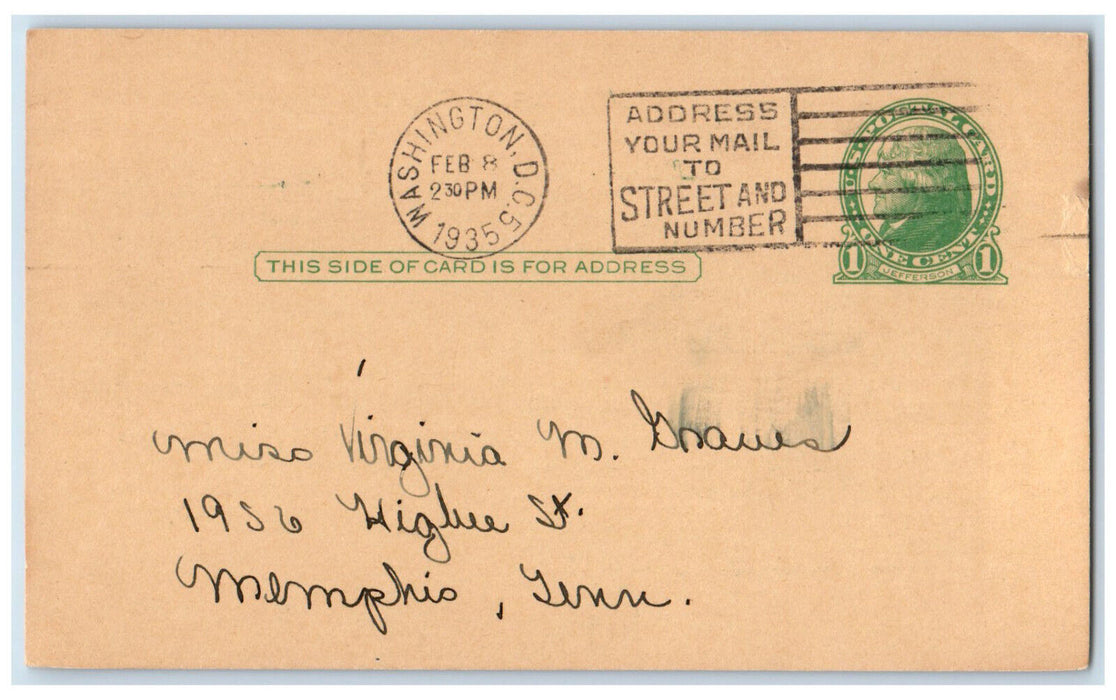 WASHINGTON, D.C. 5
FEB 8
2 30 PM
1935
ADDRESS
YOUR MAIL
TO
STREET AND
NUMBER
U.S. POSTAL CARD
ONE CENT
1 JEFFERSON 1
THIS SIDE OF CARD IS FOR ADDRESS
Miss Virginia M. Graves
1956 Higbee St.
Memphis, Tenn.